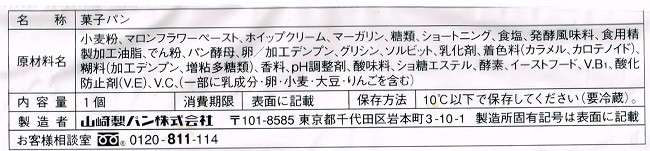 名 称 菓子パン
原材料名 小麦粉、マロンフラワーペースト、ホイップクリーム、マーガリン、糖類、ショートニング、食塩、発酵風味料、食用精
製加工油脂、でん粉、パン酵母、卵／加工デンプン、グリシン、ソルビット、乳化剤、着色料(カラメル、カロテノイド)、
糊料(加工デンプン、増粘多糖類)、香料、pH調整剤、酸味料、ショ糖エステル、酵素、イーストフード、V.B₁、酸化
防止剤(V.E)、V.C、(一部に乳成分・卵・小麦・大豆・りんごを含む)
内 容 量 1個 消費期限 表面に記載 保存方法 10℃以下で保存してください(要冷蔵)。
製 造 者 山崎製パン株式会社 〒101-8585 東京都千代田区岩本町3-10-1 製造所固有記号は表面に記載
お客様相談室 0120-811-114